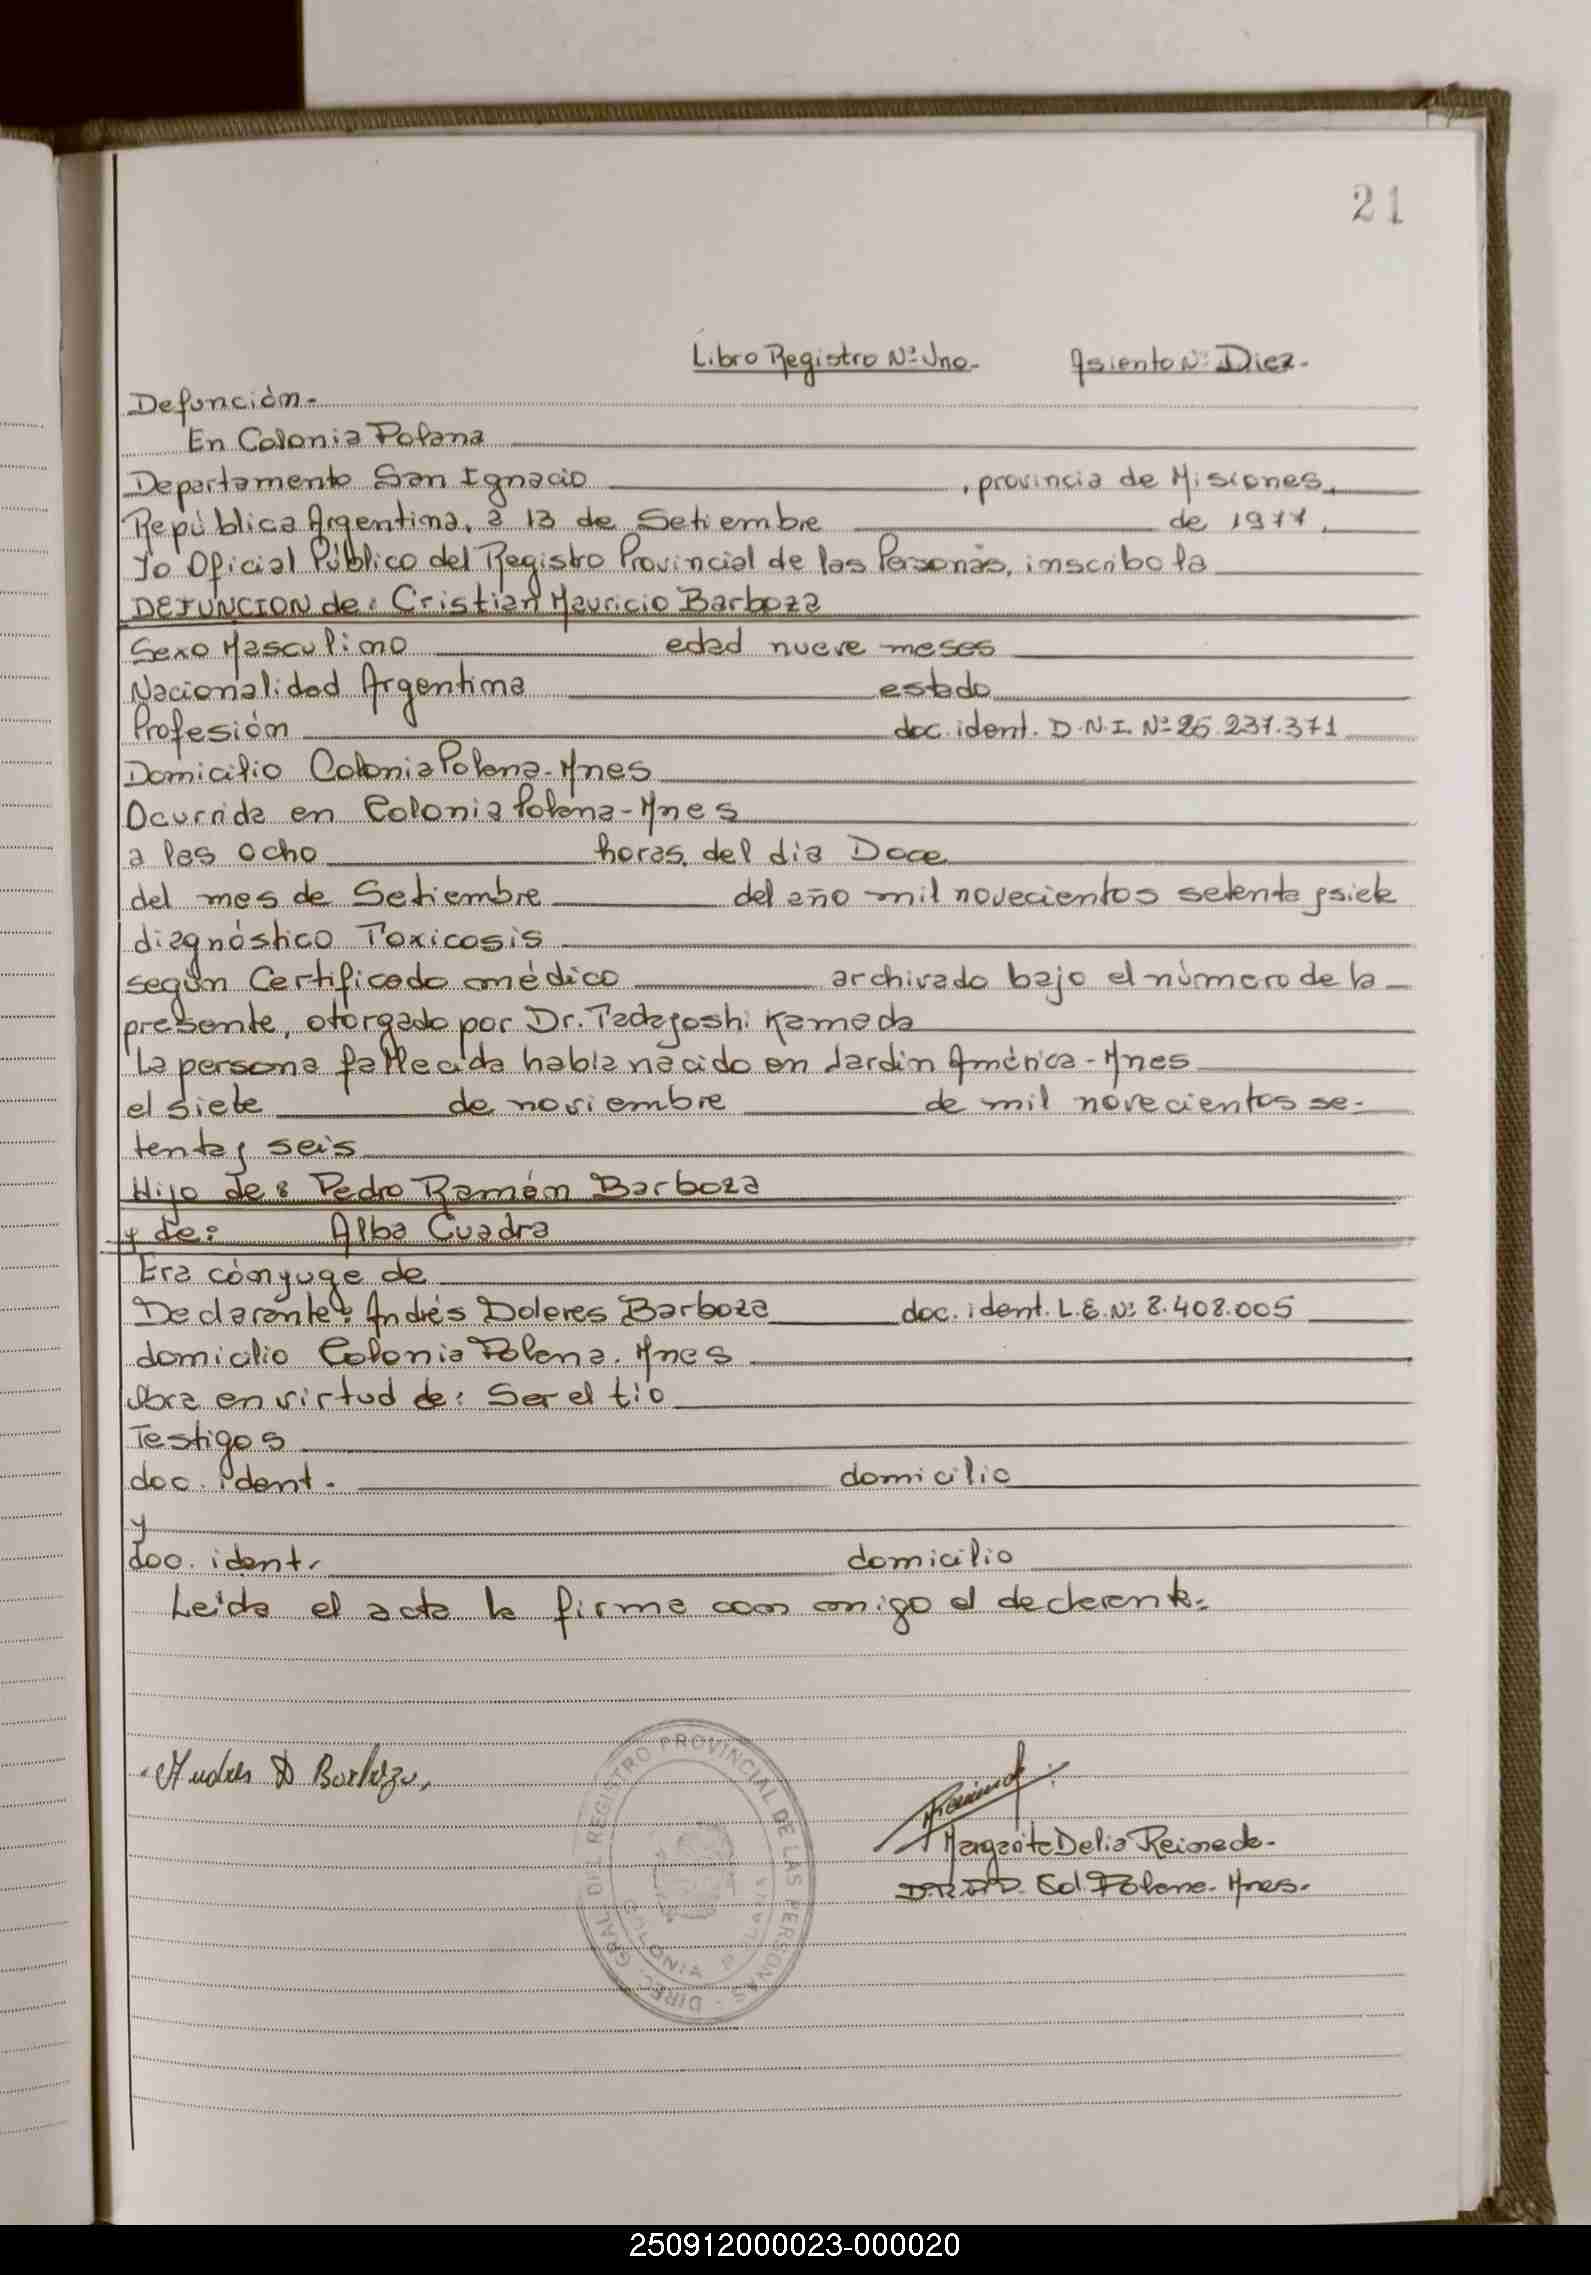 21
Libro Registro Nº Uno- Asiento Nº Diez-
Defunción-
En Colonia Polana
Departamento San Ignacio , provincia de Misiones,
República Argentina, a 13 de Setiembre de 1977,
Yo Oficial Público del Registro Provincial de las Personas, inscribo la
DEFUNCION de: Cristian Mauricio Barboza
Sexo Masculino edad nueve meses
Nacionalidad Argentina estado
Profesión doc. ident. D.N.I. Nº 25.237.371
Domicilio Colonia Polana-Mnes
Ocurrida en Colonia Polana-Mnes
a las ocho horas, del día Doce
del mes de Setiembre del año mil novecientos setenta y siete
diagnóstico Toxicosis
según Certificado médico archivado bajo el número de la
presente, otorgado por Dr. Tadayoshi Kameda
La persona fallecida había nacido en Jardín América-Mnes
el siete de noviembre de mil novecientos se-
tenta y seis
Hijo de: Pedro Ramón Barboza
y de: Alba Cuadra
Era cónyuge de
Declarante: Andrés Dolores Barboza doc. ident. L.E. Nº 8.408.005
domicilio Colonia Polana. Mnes
obra en virtud de: Ser el tío
Testigos
doc. ident. domicilio
y
doc. ident. domicilio
Leída el acta la firma con migo el declarante.
Andres D Barboza,
DIREC. GRAL. DEL REGISTRO PROVINCIAL DE LAS PERSONAS
COLONIA POLANA
Margarita Delia Reimede-
Col. Polana. Mnes.
250912000023-000020